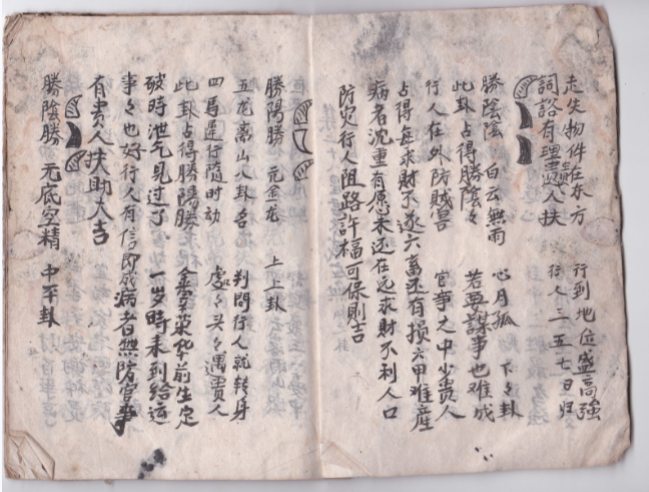 走失物件在东方 行到地位盛高強
詞訟有理貴人扶 行人三五七日归
勝陰陰 白云無雨 心月孤 下々卦
此卦占得勝陰々 若要謀事也难成
行人在外防賊害 官事之中少貴人
占得每求財不遂六畜还有損六甲难産
病者沈重有愿未还在元求財不利人口
防灾行人阻路許福可保則吉
勝陽勝 元金龙 上上卦
五龙离山八卦名 判問行人就转身
四馬運行隨时动 處々头々遇貴人
此卦占得勝陽勝 金草荣华前生定
破時泄气見过了 一岁時来到給运
事々也好行人有信即成病者無防官事
有貴人扶助大吉
勝陰勝 元底空精 中平卦